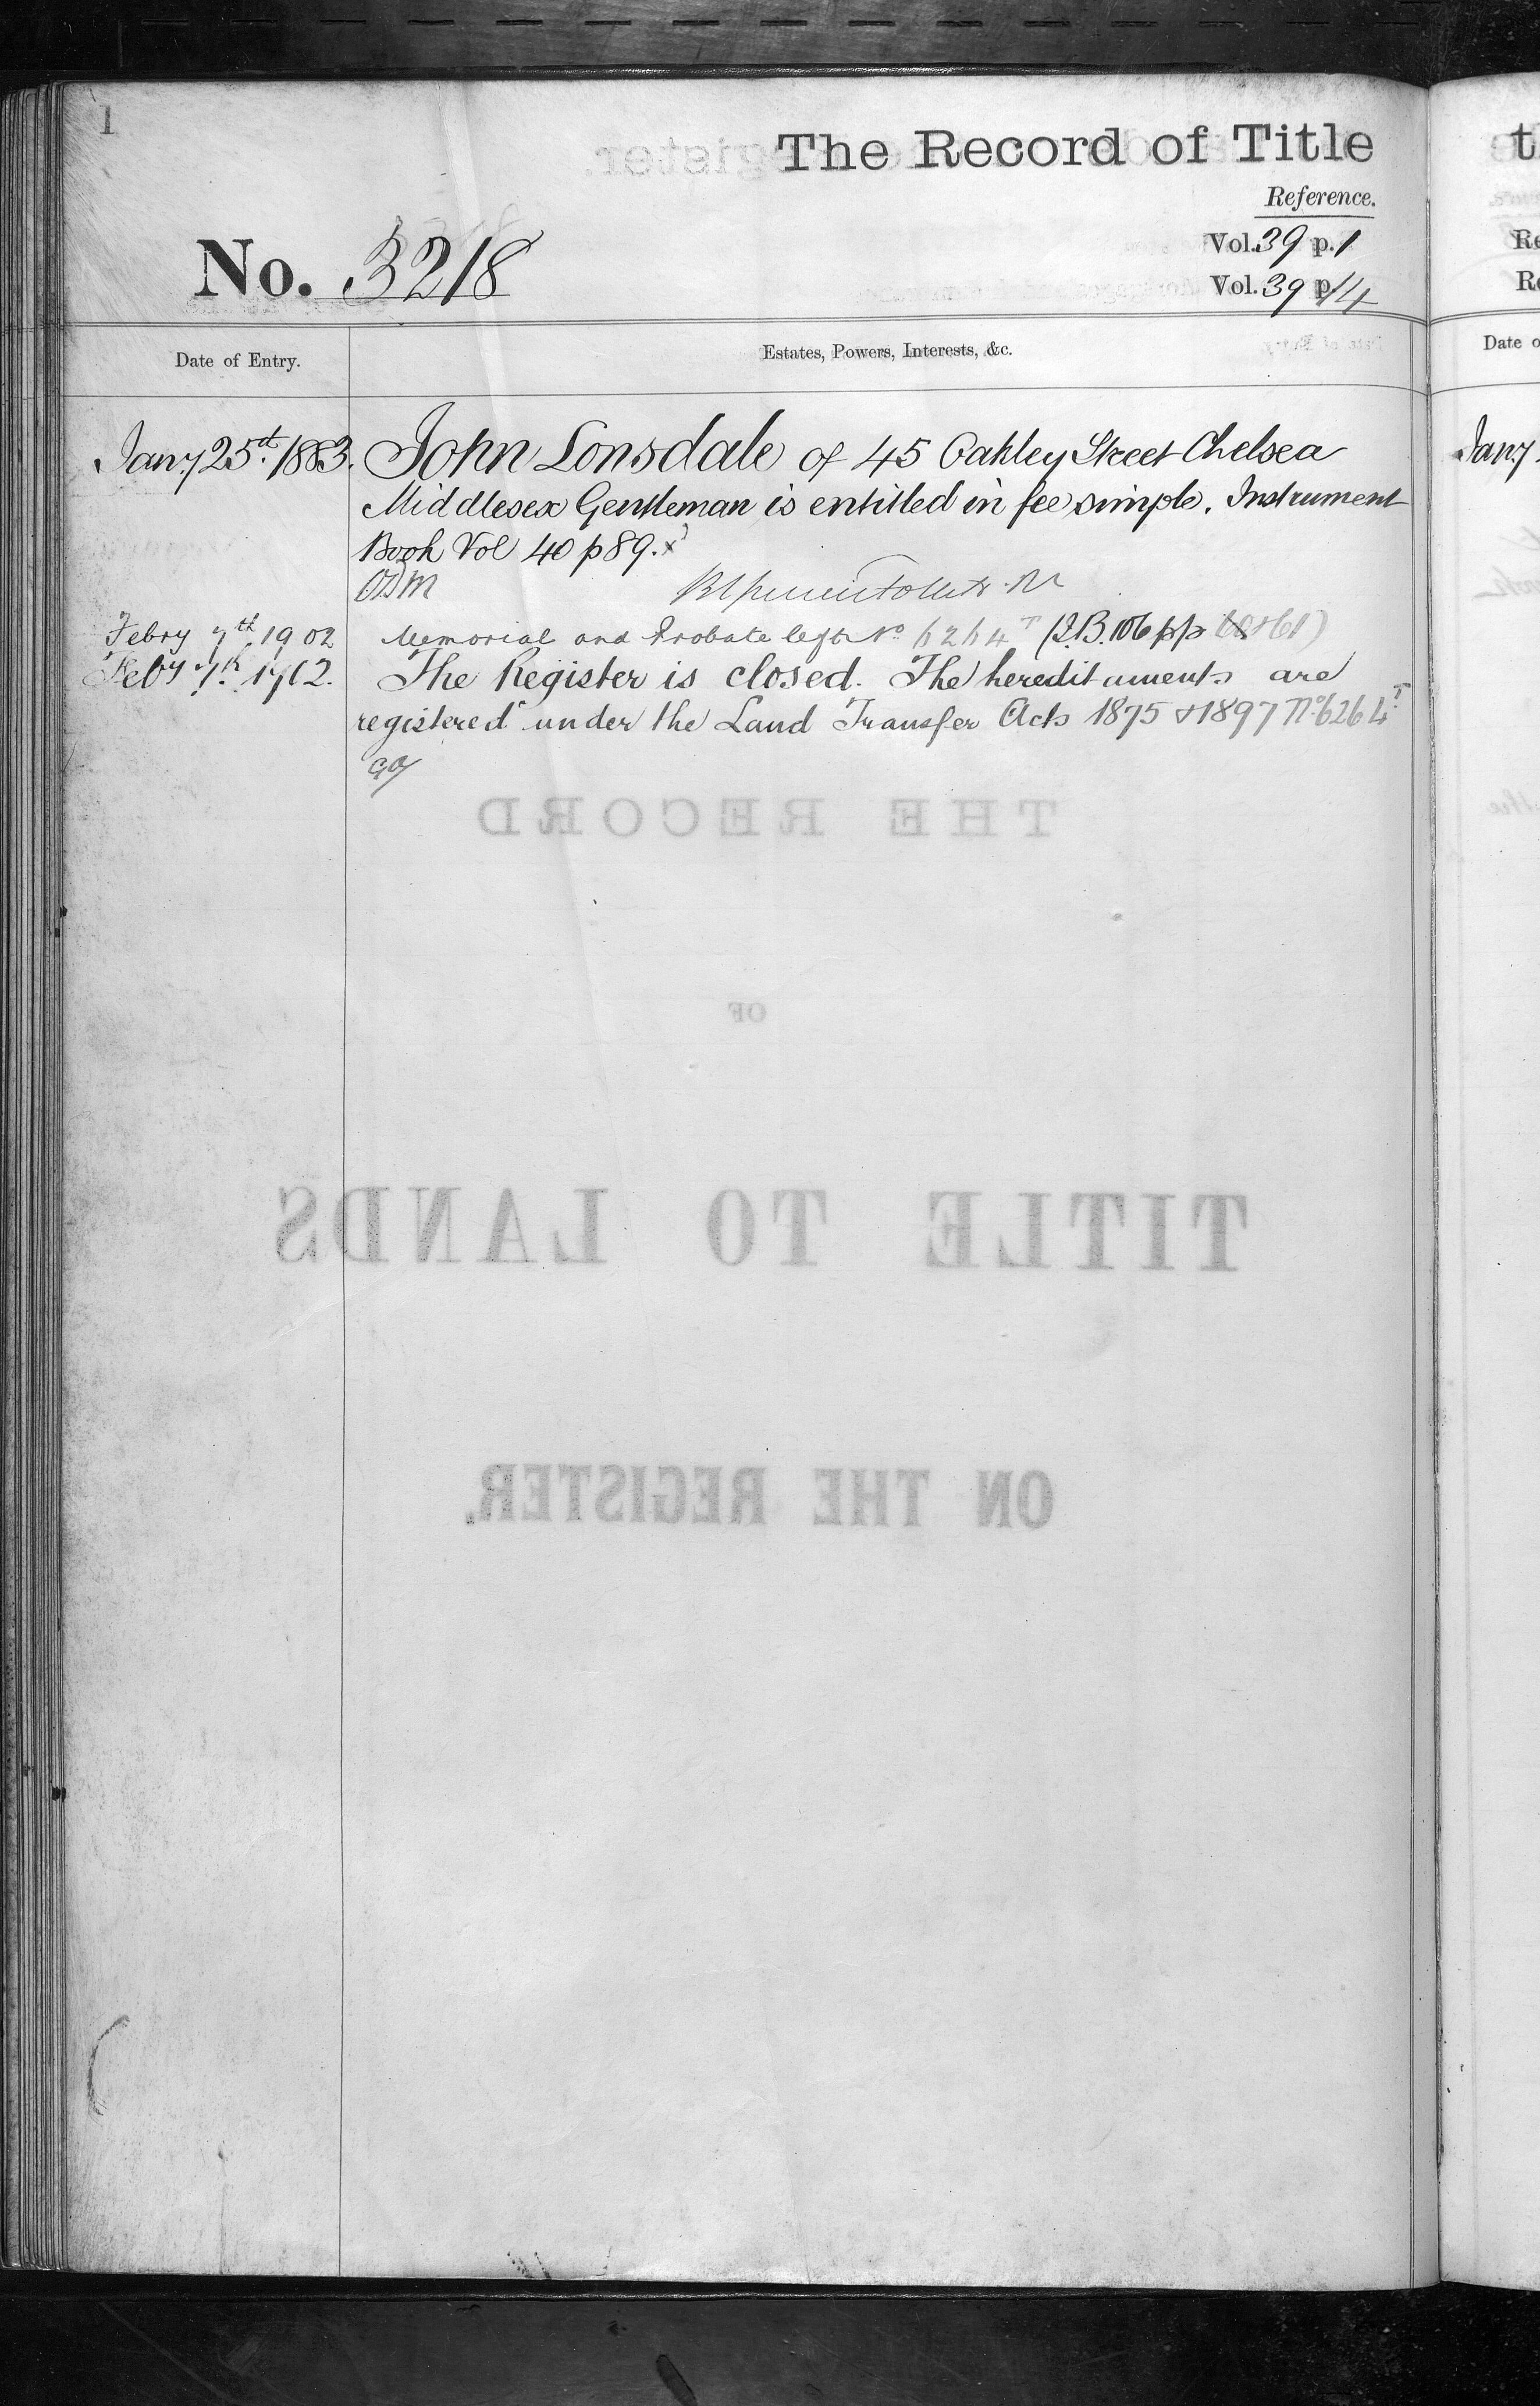 1
The Record of Title
Reference.
No. 3218
Vol. 39 p. 1
Vol. 39 p 14
Date of Entry.
Estates, Powers, Interests, &c.
Jany 25th 1883. John Lonsdale of 45 Oakley Street Chelsea
Middlesex Gentleman is entitled in fee simple. Instrument
Book Vol 40 p 89.
Febry 7th 1902 Memorial and Probate left No 6264T (I.B. 106 pp 61)
Feby 7th 1902. The Register is closed. The hereditaments are
registered under the Land Transfer Acts 1875 & 1897 No 6264T
THE RECORD
OF
TITLE TO LANDS
ON THE REGISTER.
t
Re
Re
Date o
Jany